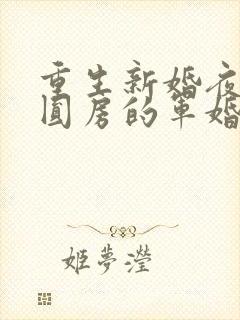 重生新婚夜
圆房的军婚
姬夢瀅